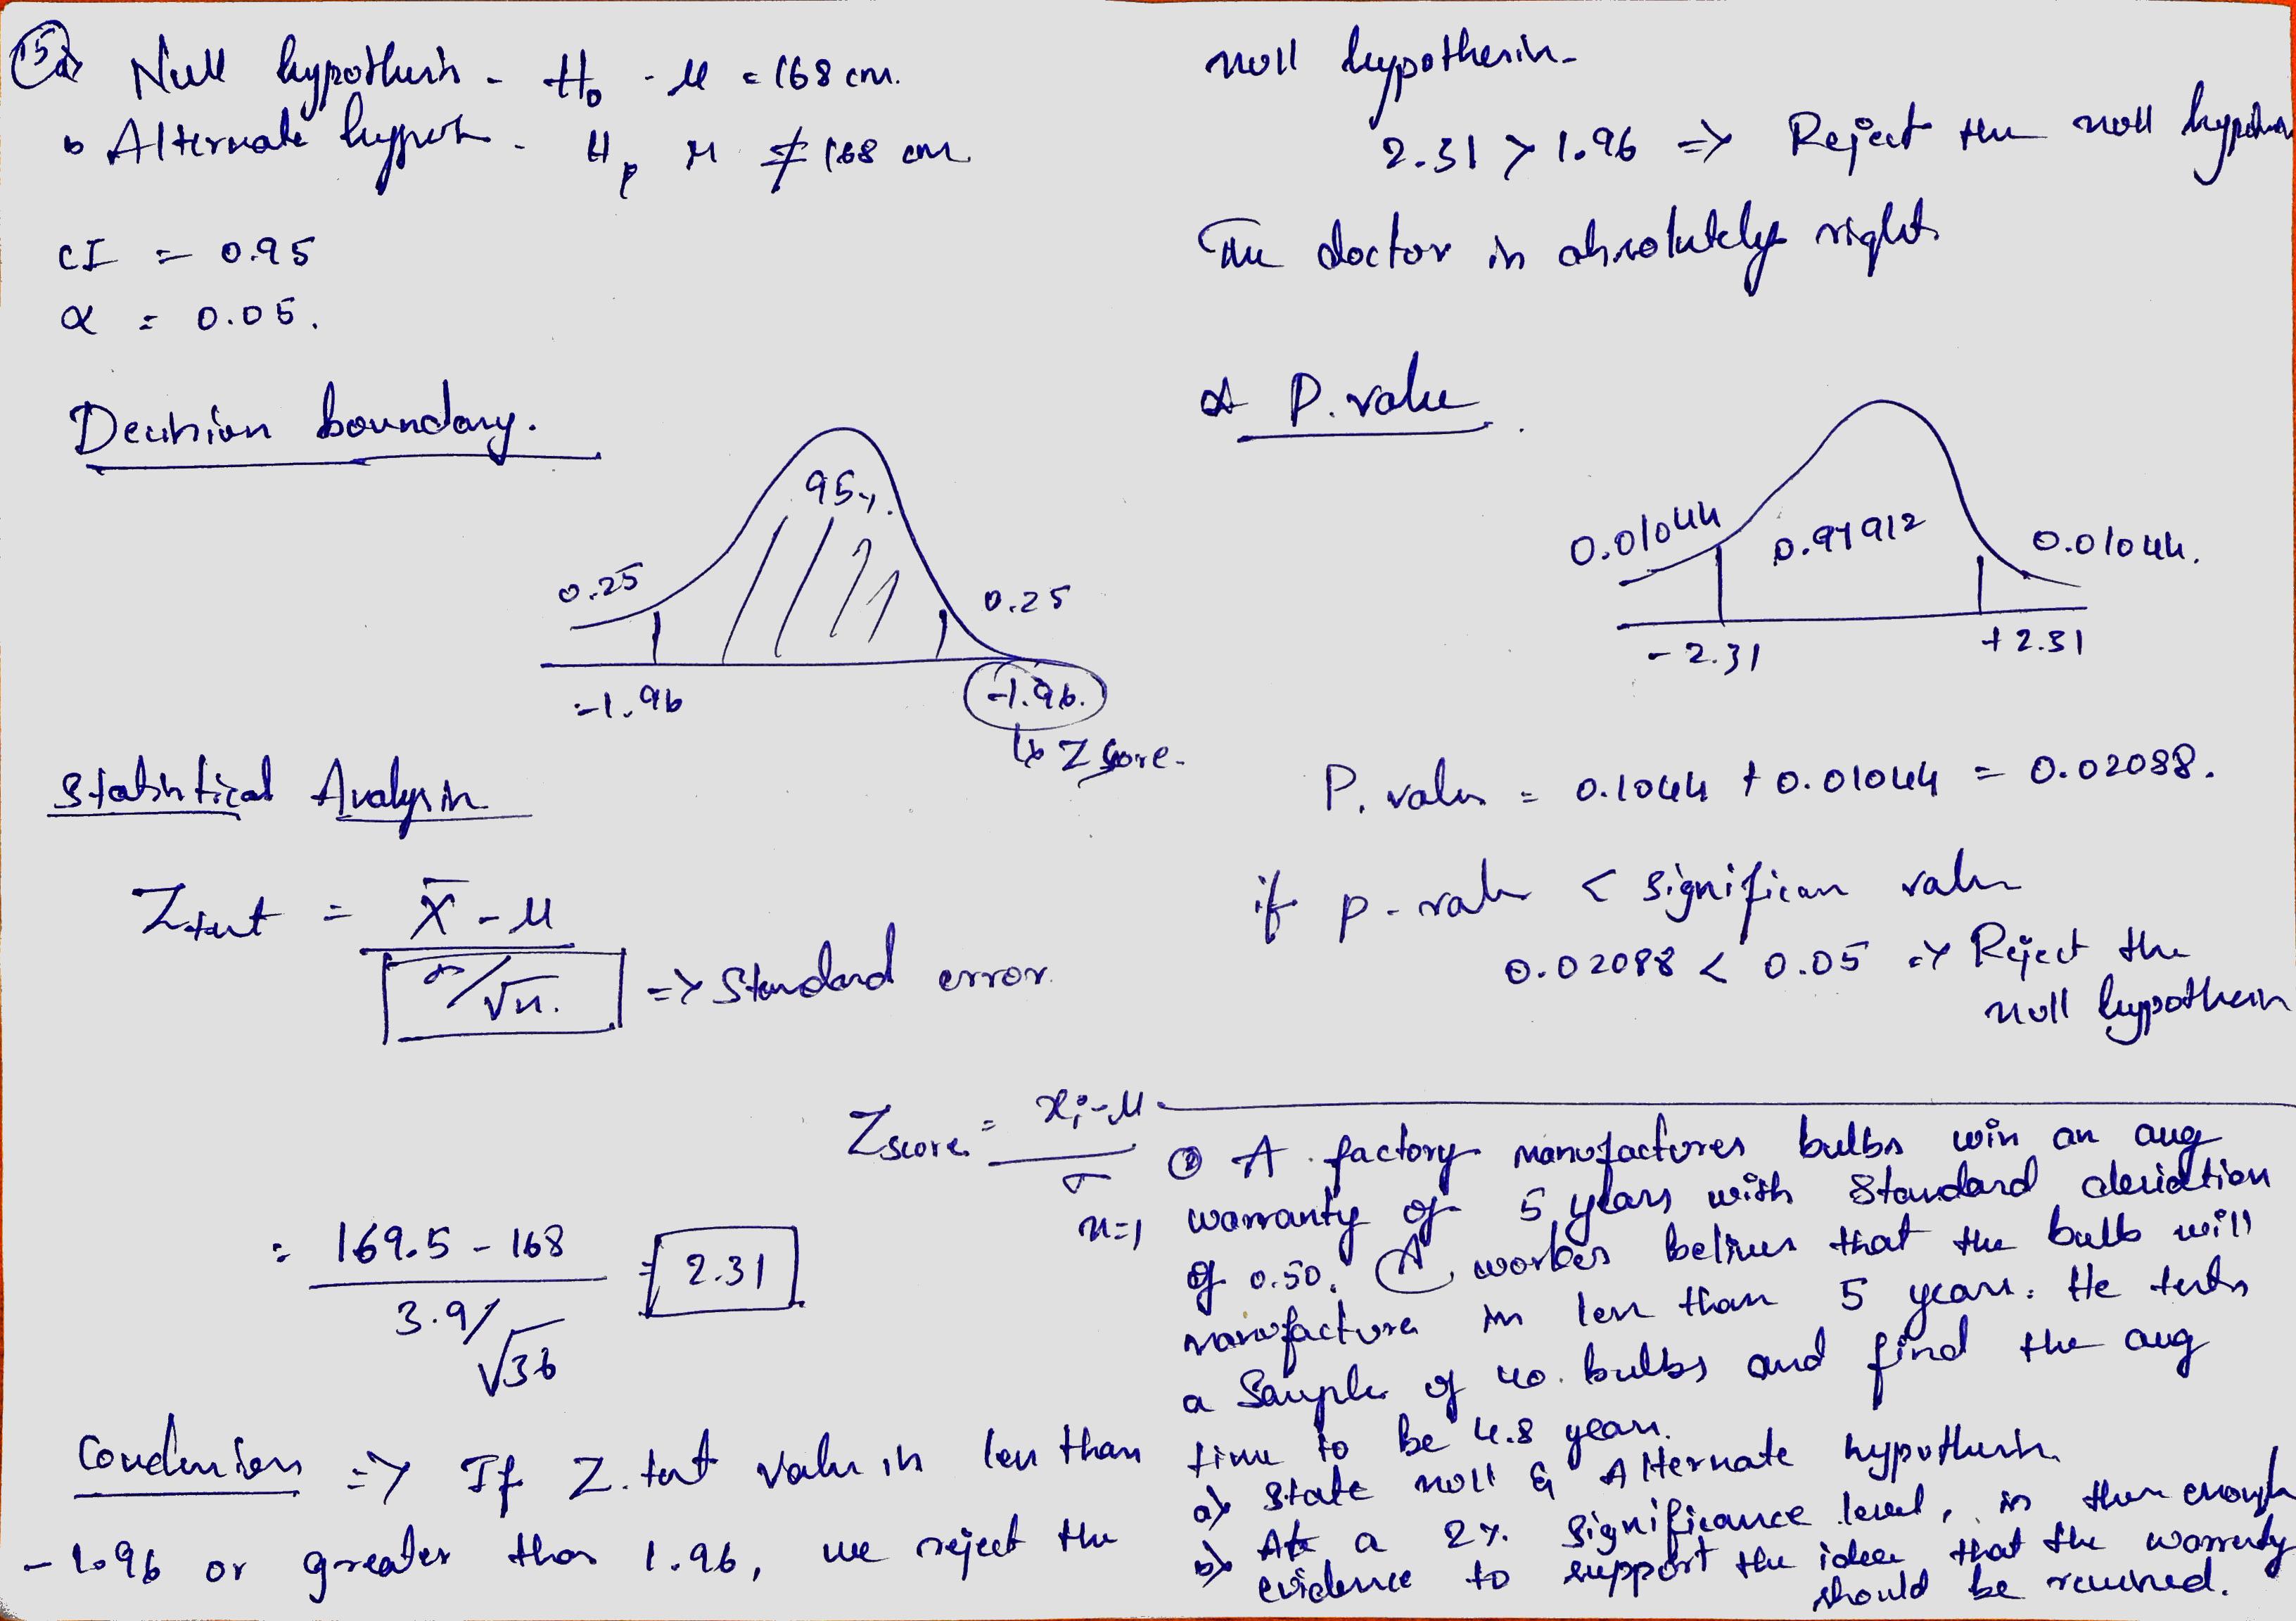 15 a) Null hypothesis - H₀ - μ = 168 cm.
b Alternate hypoth - H₁ μ ≠ 168 cm
CI = 0.95
α = 0.05.
Decision boundary.
95%.
0.25
0.25
-1.96
-1.96.
↳ Z Score.
Statistical Analysis
Ztest = x̄ - μ
σ/√n. => Standard error.
Zscore = xᵢ - μ
σ
n=1
= 169.5 - 168
3.9/√36
= 2.31
Conclusion => If Z.test value is less than
-1.96 or greater than 1.96, we reject the
null hypothesis.
2.31 > 1.96 => Reject the null hypothesis
The doctor is absolutely right
P.value
0.01044
0.97912
0.01044.
-2.31
+2.31
P. value = 0.1044 + 0.01044 = 0.02088.
if p-value < significan value
0.02088 < 0.05 => Reject the
null hypothesis
② A factory manufactures bulbs win an avg
warranty of 5 years with standard deviation
of 0.50. A worker belives that the bulb will
manufacture in less than 5 years. He tests
a Sample of 40. bulbs and find the avg
time to be 4.8 years.
a) State null & Alternate hypothesis.
b) At a 2% significance level, is there enough
evidence to support the idea that the warrenty
should be revised.